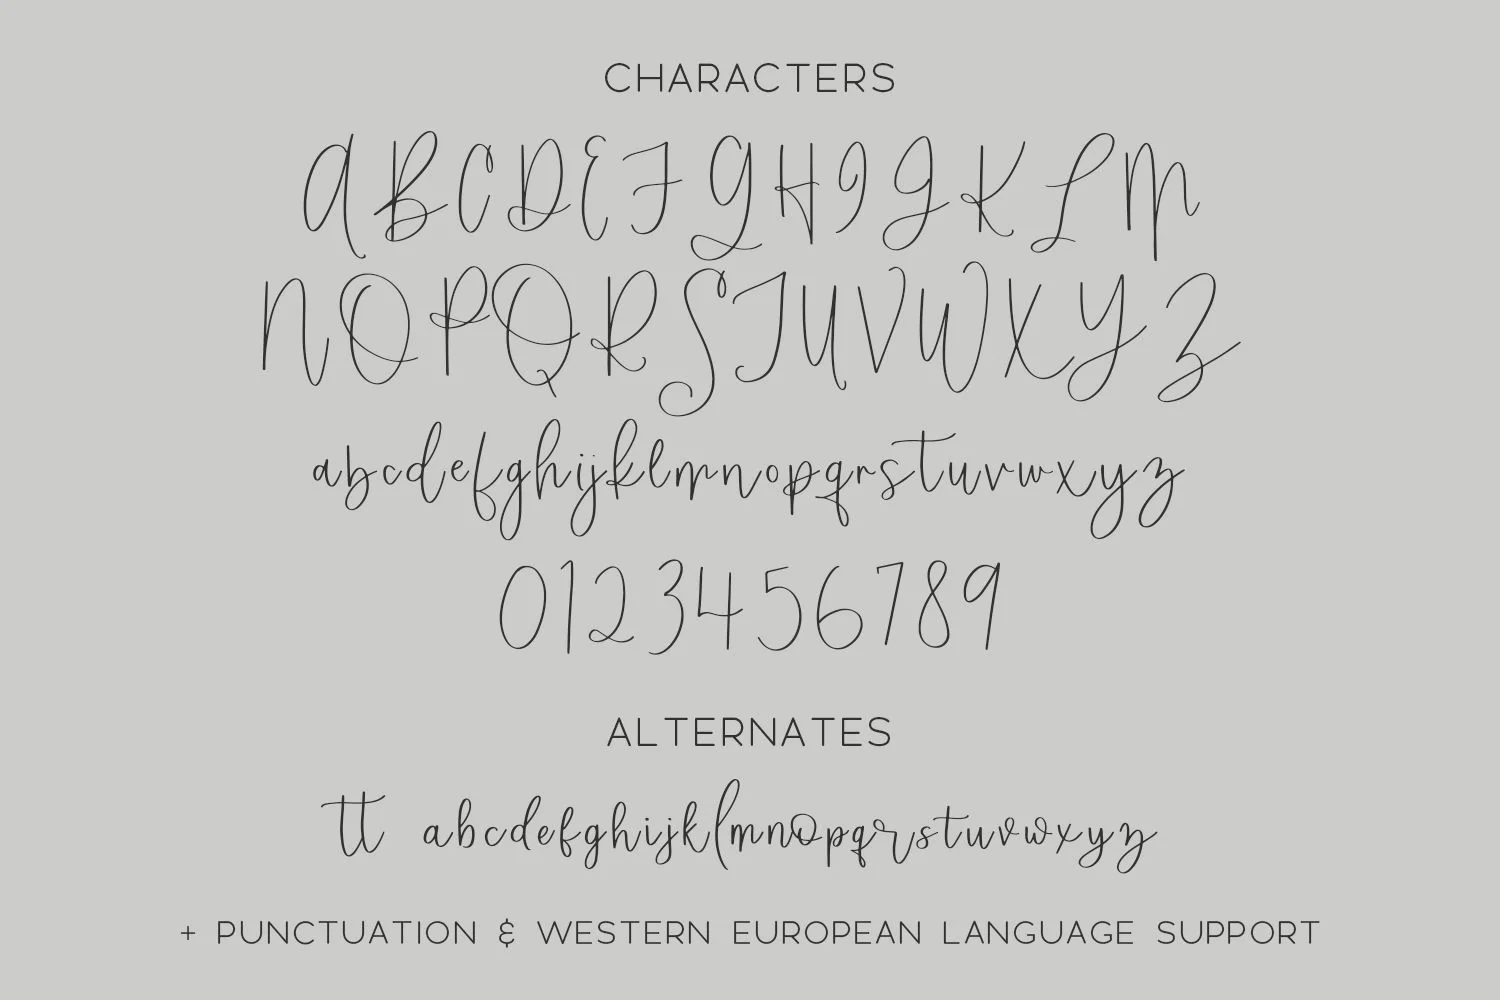 CHARACTERS
ABCDEFGHIJKLM
NOPQRSTUVWXYZ
abcdefghijklmnopqrstuvwxyz
0123456789
ALTERNATES
tt abcdefghijklmnopqrstuvwxyz
+ PUNCTUATION & WESTERN EUROPEAN LANGUAGE SUPPORT